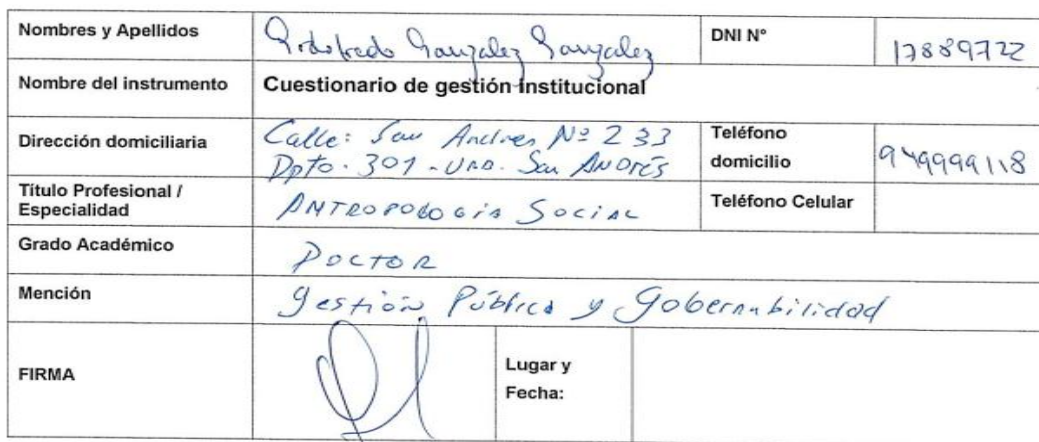 Nombres y Apellidos Gonzalez Gonzalez DNI N° 17889722
Nombre del instrumento Cuestionario de gestión Institucional
Dirección domiciliaria Calle: San Andres Nº 233
Dpto. 301 - URB. San ANDRÉS
Teléfono
domicilio 949999118
Título Profesional /
Especialidad
ANTROPOLOGIA SOCIAL Teléfono Celular
Grado Académico DOCTOR
Mención Gestión Pública y Gobernabilidad
FIRMA
Lugar y
Fecha: